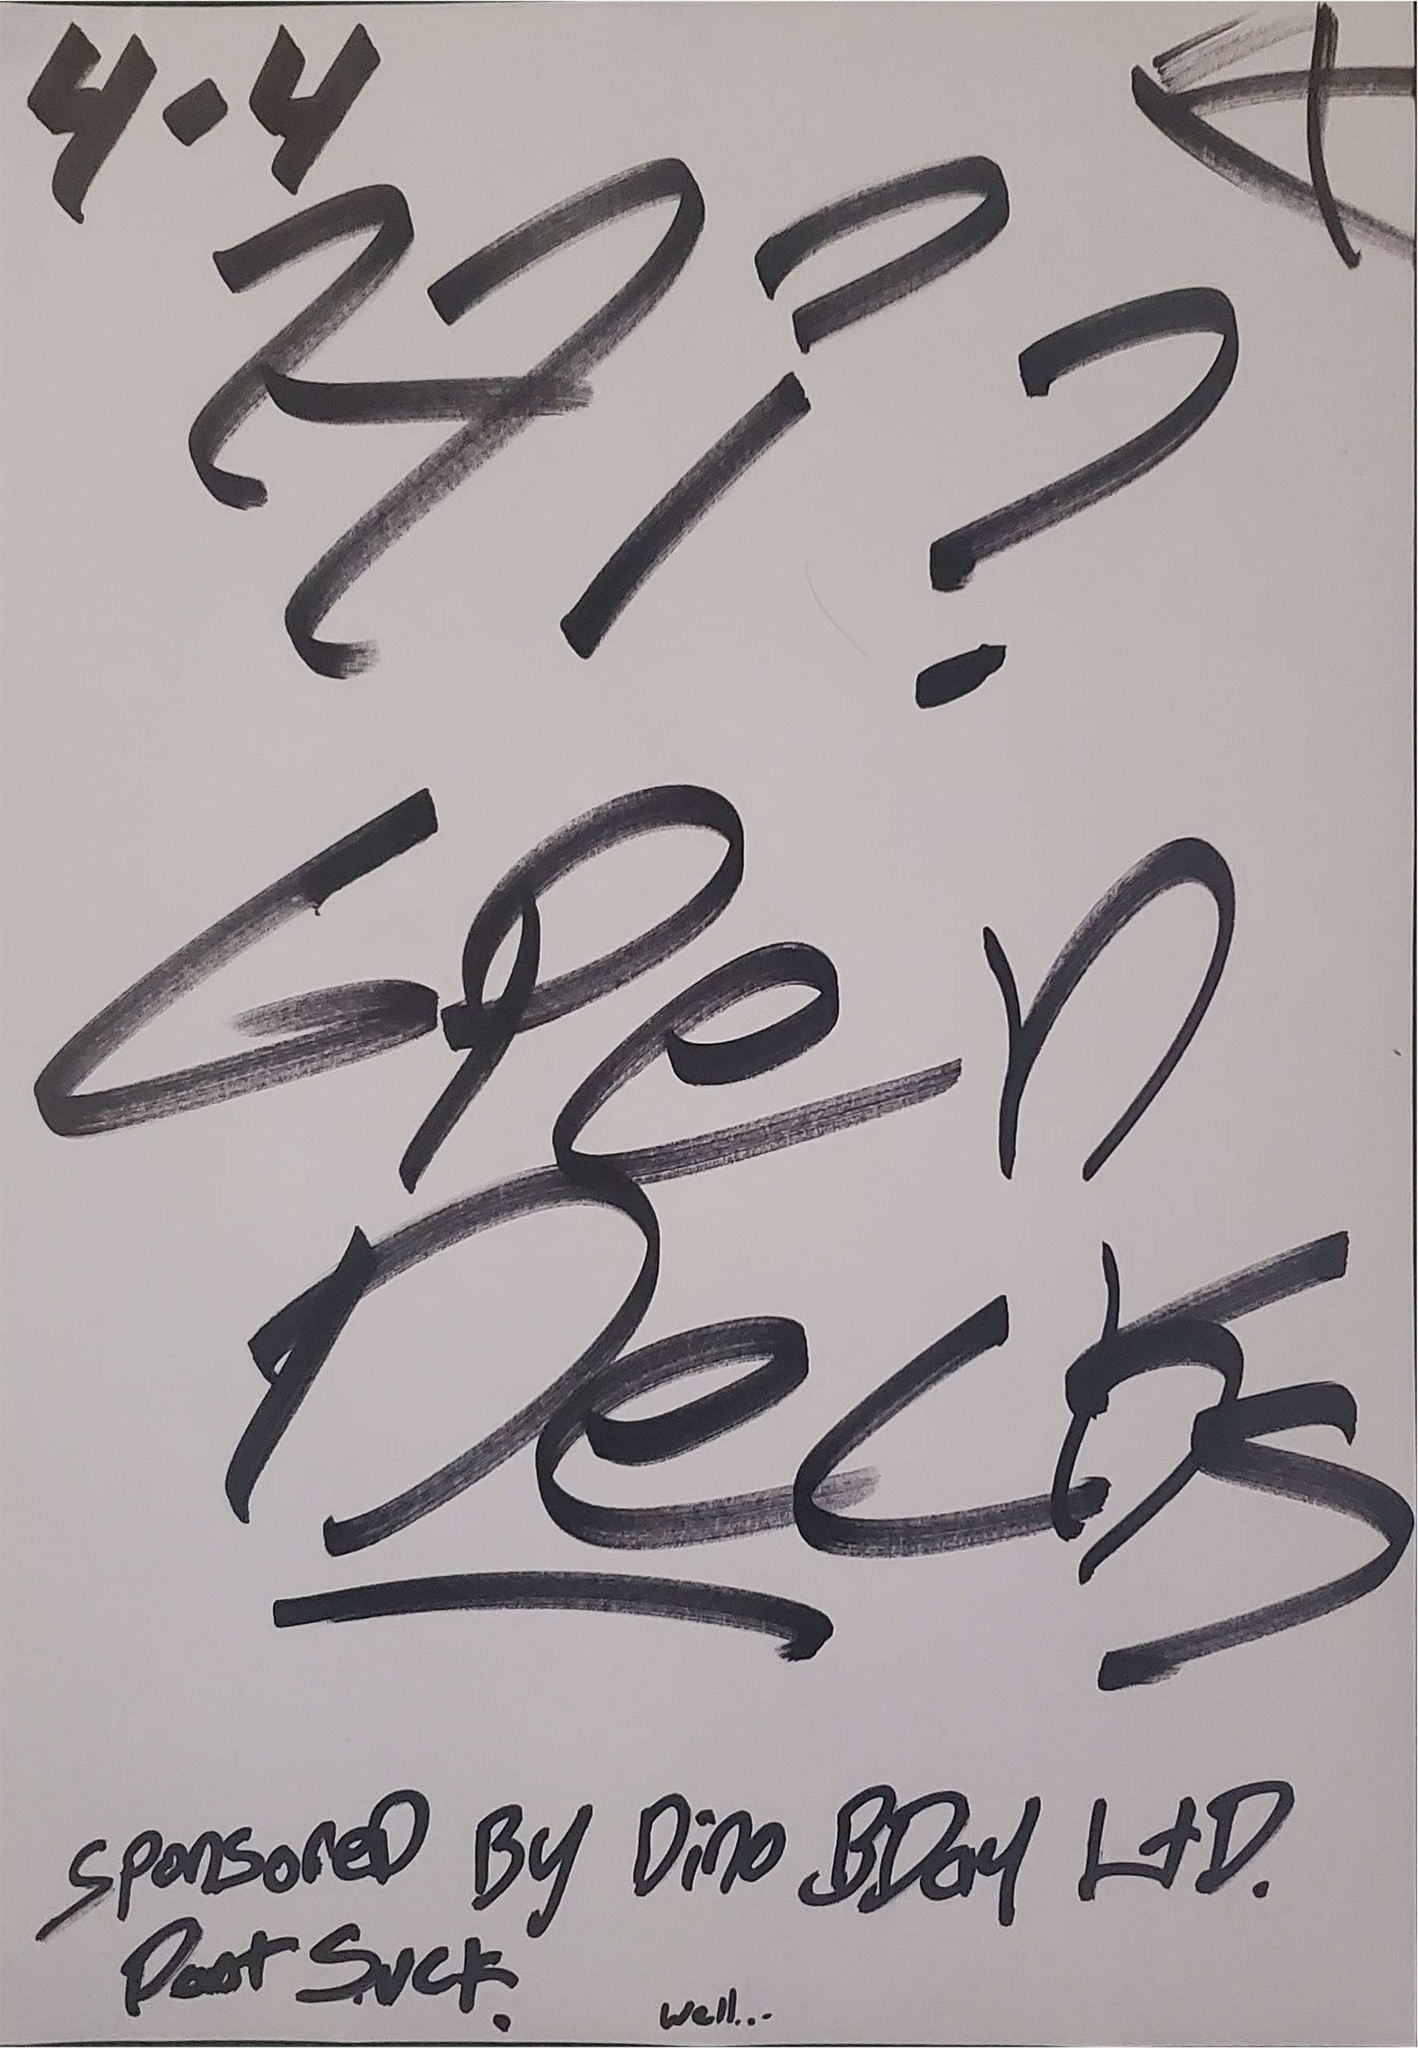 4.4
Hi?
Open
Decks
Sponsored By Dino BDay LtD.
Dont Suck.
well...